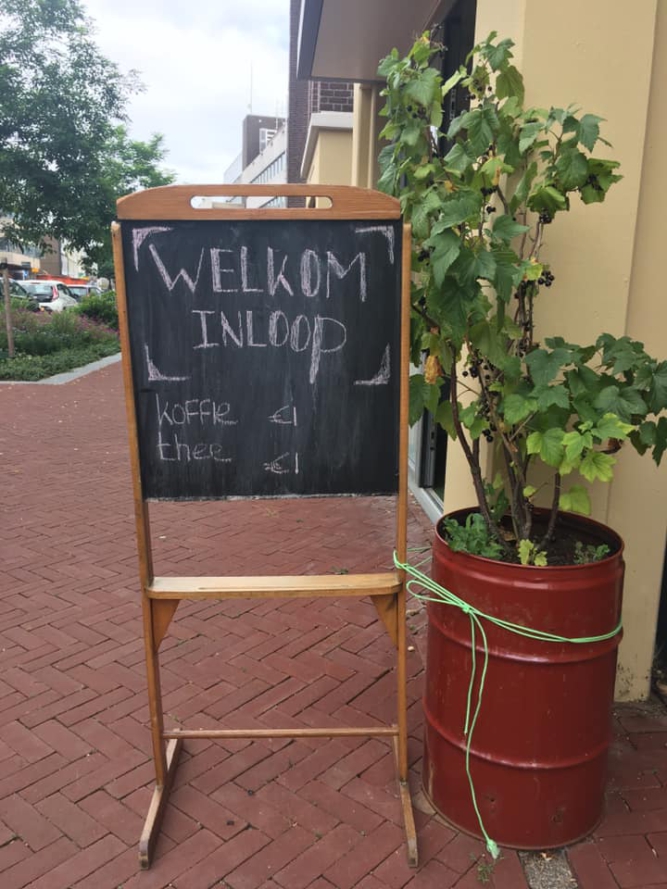 WELKOM
INLOOP
koffie €1
thee €1